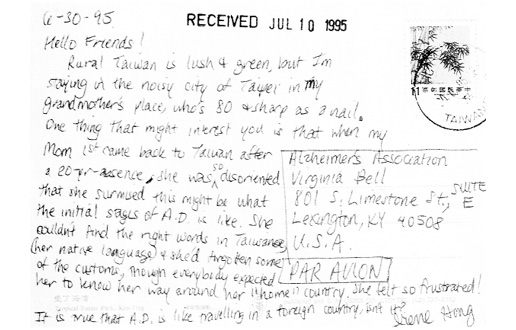 6-30-95
RECEIVED JUL 10 1995
Hello Friends!
Rural Taiwan is lush & green, but I'm
staying in the noisy city of Taipei in my
grandmother's place, who's 80 & sharp as a nail.
One thing that might interest you is that when my
Mom 1st came back to Taiwan after
a 20 yr-absence, she was so disoriented
that she surmised this might be what
the initial stages of A.D. is like. She
couldn't find the right words in Taiwanese
(her native language) & she'd forgotten some
of the customs, though everybody expected
her to know her way around her "home" country. She felt so frustrated!
It is true that A.D. is like travelling in a foreign country, isn't it?
Irene Hong
Alzheimer's Association
Virginia Bell
801 S. Limestone St, SUITE E
Lexington, KY 40508
U.S.A.
PAR AVION
中華民國郵票
TAIWAN